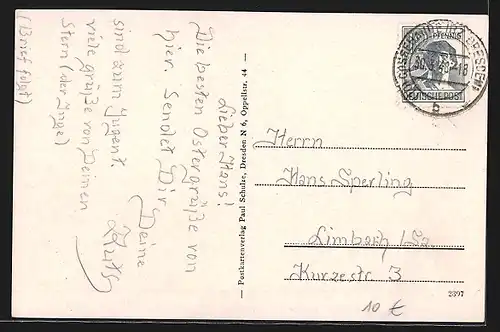 Lieber Hans!
Die besten Ostergrüße von
hier. Sendet Dir
Deine
Ruth
sind zum
viele grüße von Deinen
Stern (der Inge)
(Brief folgt)
— Postkartenverlag Paul Schulze, Dresden N 6, Oppellstr. 44 —
PFENNIG
DEUTSCHE POST
DRESDEN
b
Herrn
Hans Sperling
Limbach / Sa
Kurzestr. 3
2397
10 €